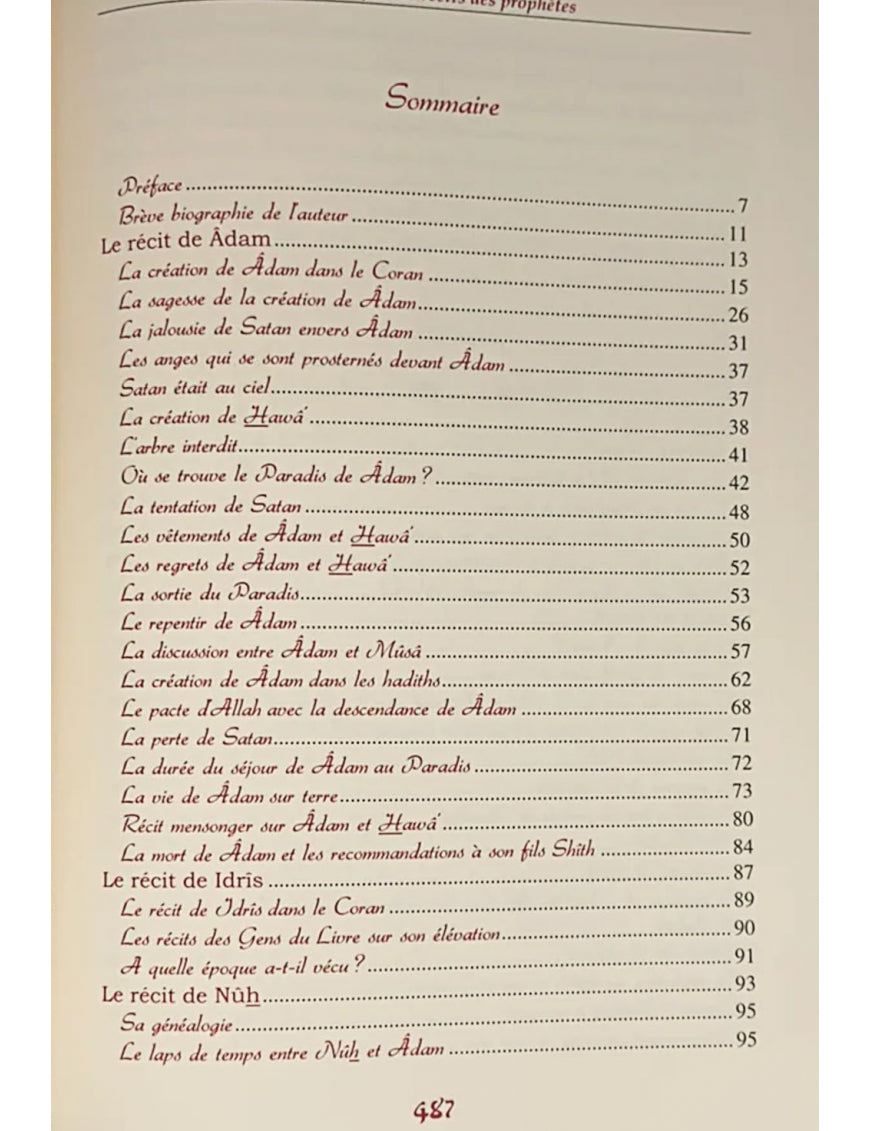 des prophètes
Sommaire
Préface 7
Brève biographie de l'auteur 11
Le récit de Âdam 13
La création de Âdam dans le Coran 15
La sagesse de la création de Âdam 26
La jalousie de Satan envers Âdam 31
Les anges qui se sont prosternés devant Âdam 37
Satan était au ciel 37
La création de Hawâ' 38
L'arbre interdit 41
Où se trouve le Paradis de Âdam ? 42
La tentation de Satan 48
Les vêtements de Âdam et Hawâ' 50
Les regrets de Âdam et Hawâ' 52
La sortie du Paradis 53
Le repentir de Âdam 56
La discussion entre Âdam et Mûsâ 57
La création de Âdam dans les hadiths 62
Le pacte d'Allah avec la descendance de Âdam 68
La perte de Satan 71
La durée du séjour de Âdam au Paradis 72
La vie de Âdam sur terre 73
Récit mensonger sur Âdam et Hawâ' 80
La mort de Âdam et les recommandations à son fils Shîth 84
Le récit de Idrîs 87
Le récit de Idrîs dans le Coran 89
Les récits des Gens du Livre sur son élévation 90
A quelle époque a-t-il vécu ? 91
Le récit de Nûh 93
Sa généalogie 95
Le laps de temps entre Nûh et Âdam 95
487